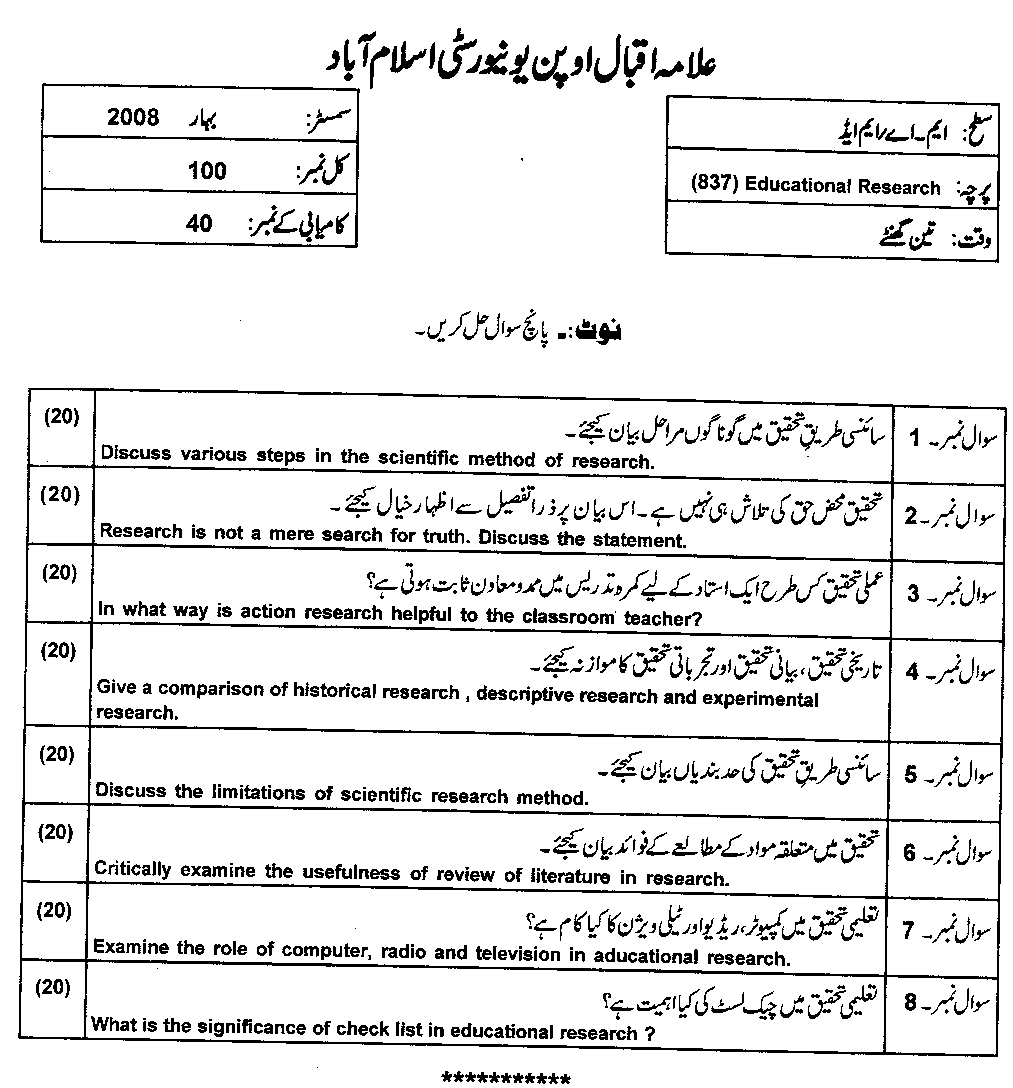 علامہ اقبال اوپن یونیورسٹی اسلام آباد
سطح: ایم۔اے/ایم ایڈ
پرچہ: Educational Research (837)
وقت: تین گھنٹے
سمسٹر: بہار 2008
کل نمبر: 100
کامیابی کے نمبر: 40
نوٹ:۔ پانچ سوال حل کریں۔
سوال نمبر۔ 1 سائنسی طریقِ تحقیق میں گوناگوں مراحل بیان کیجئے۔ (20)
Discuss various steps in the scientific method of research.
سوال نمبر۔ 2 تحقیق محض حق کی تلاش ہی نہیں ہے۔ اس بیان پر ذرا تفصیل سے اظہار خیال کیجئے۔ (20)
Research is not a mere search for truth. Discuss the statement.
سوال نمبر۔ 3 عملی تحقیق کس طرح ایک استاد کے لیے کمرہ تدریس میں ممد و معاون ثابت ہوتی ہے؟ (20)
In what way is action research helpful to the classroom teacher?
سوال نمبر۔ 4 تاریخی تحقیق، بیانی تحقیق اور تجرباتی تحقیق کا موازنہ کیجئے۔ (20)
Give a comparison of historical research , descriptive research and experimental
research.
سوال نمبر۔ 5 سائنسی طریقِ تحقیق کی حد بندیاں بیان کیجئے۔ (20)
Discuss the limitations of scientific research method.
سوال نمبر۔ 6 تحقیق میں متعلقہ مواد کے مطالعے کے فوائد بیان کیجئے۔ (20)
Critically examine the usefulness of review of literature in research.
سوال نمبر۔ 7 تعلیمی تحقیق میں کمپیوٹر، ریڈیو اور ٹیلی ویژن کا کیا کام ہے؟ (20)
Examine the role of computer, radio and television in aducational research.
سوال نمبر۔ 8 تعلیمی تحقیق میں چیک لسٹ کی کیا اہمیت ہے؟ (20)
What is the significance of check list in educational research ?
***********